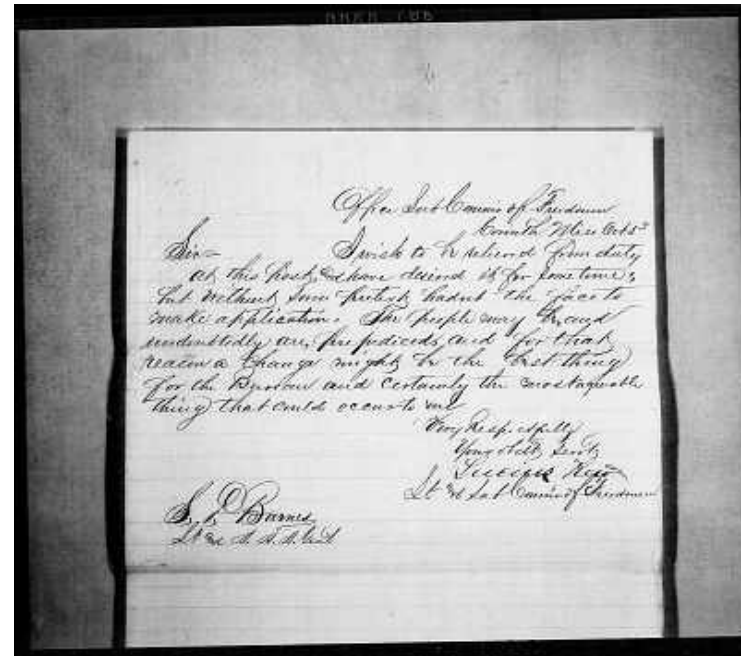 Office Sub Commis of Freedmen
Corinth Miss Oct 5th
Sir = I wish to be relieved from duty
at this post, and have desired it for some time,
but without some pretext hadnt the face to
make application. The people may be, and
undoubtedly are, prejudiced, and for that
reason a change might be the best thing
for the Bureau and certainly the most agreeable
thing that could occur to me
Very Respectfully
Your Obdt Servt
Lt and Sub Commis of Freedmen
S. D. Barnes
Lt and A. A. A. Genl